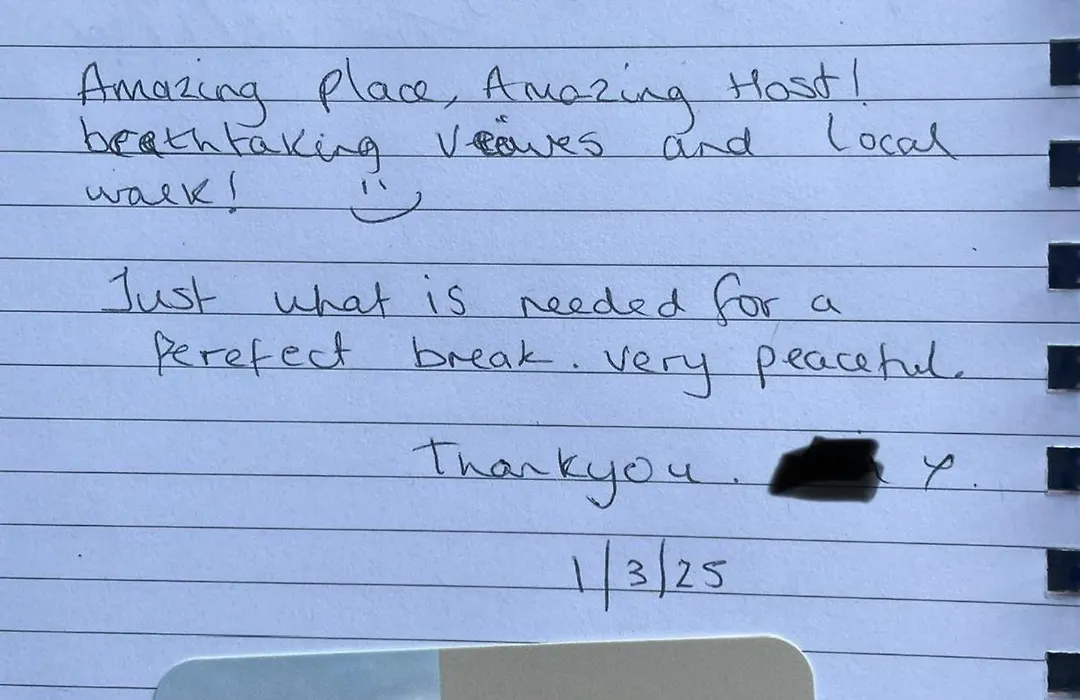 Amazing place, Amazing Host!
breathtaking and local
walk!
Just what is needed for a
perefect break. very peaceful.
Thankyou. x.
1/3/25